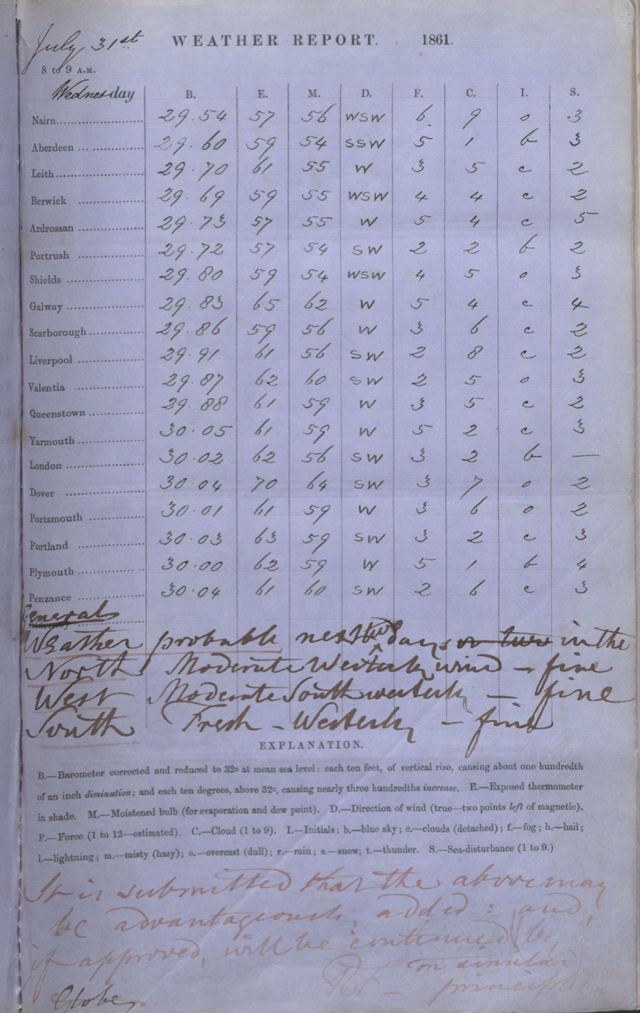 July 31st WEATHER REPORT. 1861.
8 to 9 A.M.
Wednesday B. E. M. D. F. C. I. S.
Nairn 29.54 57 56 WSW 6 9 o 3
Aberdeen 29.60 59 54 SSW 5 1 b 3
Leith 29.70 61 55 W 3 5 c 2
Berwick 29.69 59 55 WSW 4 4 c 2
Ardrossan 29.73 57 55 W 5 4 c 5
Portrush 29.72 57 54 SW 2 2 b 2
Shields 29.80 59 54 WSW 4 5 o 3
Galway 29.83 65 62 W 5 4 c 4
Scarborough 29.86 59 56 W 3 6 c 2
Liverpool 29.91 61 56 SW 2 8 c 2
Valentia 29.87 62 60 SW 2 5 o 3
Queenstown 29.88 61 59 W 3 5 c 2
Yarmouth 30.05 61 59 W 5 2 c 3
London 30.02 62 56 SW 3 2 b —
Dover 30.04 70 64 SW 3 7 o 2
Portsmouth 30.01 61 59 W 3 6 o 2
Portland 30.03 63 59 SW 3 2 c 3
Plymouth 30.00 62 59 W 5 1 b 4
Penzance 30.04 61 60 SW 2 6 c 3
General
Weather probable next two days or two in the
North Moderate Westerly wind – fine
West Moderate South westerly – fine
South Fresh – Westerly – fine
EXPLANATION.
B.—Barometer corrected and reduced to 32o at mean sea level: each ten feet, of vertical rise, causing about one hundredth
of an inch diminution; and each ten degrees, above 32o, causing nearly three hundredths increase. E.—Exposed thermometer
in shade. M.—Moistened bulb (for evaporation and dew point). D.—Direction of wind (true—two points left of magnetic).
F.—Force (1 to 12—estimated). C.—Cloud (1 to 9). I.—Initials: b.—blue sky; c.—clouds (detached); f.—fog; h.—hail;
l.—lightning; m.—misty (hazy); o.—overcast (dull); r.—rain; s.—snow; t.—thunder. S.—Sea-disturbance (1 to 9.)
It is submitted that the above may
be advantageously added: and,
if approved, will be continued
on similar
RF – principles
Globe